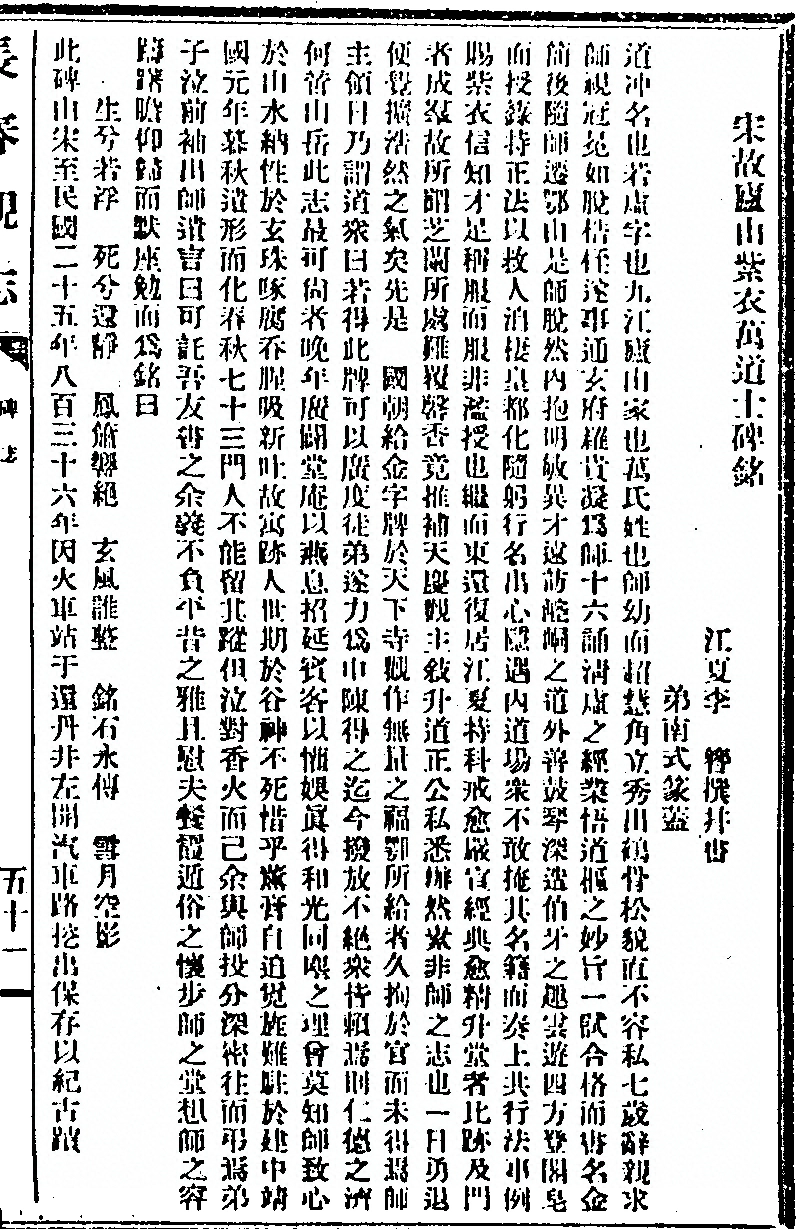 宋故廬山紫衣萬道士碑銘
江夏李　彎撰并書
弟南式篆蓋
道冲名也若虛字也九江廬山家也萬氏姓也師幼而超慧角立秀出鶴骨松貌直不容私七歲辭親求
師視冠冕如脫桔任遂事通玄府羅貴凝爲師十六誦淸虛之經業悟道樞之妙旨一試合格而書名金
簡後隨師遷鄂山是師脫然內抱明敏異才遠訪崆峒之道外善鼓琴深造伯牙之趣雲遊四方登閣皂
而授籙持正法以救人泊棲皇都化隨躬行名出心隱遇內道場衆不敢掩其名籍而奏上其行法事例
賜紫衣信知才足稱服而服非濫授也繼而東還復居江夏持科戒愈嚴官經典愈精升堂者比跡及門
者成羣故所謂芝蘭所處雖褻馨香竟推補天慶觀主敍升道正公私悉辦然素非師之志也一日勇退
便覺擴浩然之氣矣先是　國朝給金字牌於天下寺觀作無量之福鄂所給者久拘於官而未得焉師
主領日乃謂道衆曰若得此牌可以廣度徒弟遂力爲申陳得之迄今撥放不絕衆皆賴焉則仁德之濟
何啻山岳此志最可尙者晚年廣闢堂庵以燕息招延賓客以懽娛眞得和光同塵之理會莫知師致心
於山水納性於玄珠啄腐吞腥吸新吐故寓跡人世期於谷神不死惜乎歲齊自迫覺旌難駐於建中靖
國元年暮秋遺形而化春秋七十三門人不能留其蹤但泣對香火而已余與師投分深密往而弔焉弟
子泣前袖出師遺言曰可託吾友書之余義不負平昔之雅且慰夫餐霞遁俗之懷步師之堂想師之容
躊躇瞻仰歸而默座勉而爲銘曰
生兮若浮　死兮還靜　鳳簫響絕　玄風誰整　銘石永傳　雲月空影
此碑由宋至民國二十五年八百三十六年因火車站于還丹井左開汽車路挖出保存以紀古蹟
長春觀志
碑志
五十一